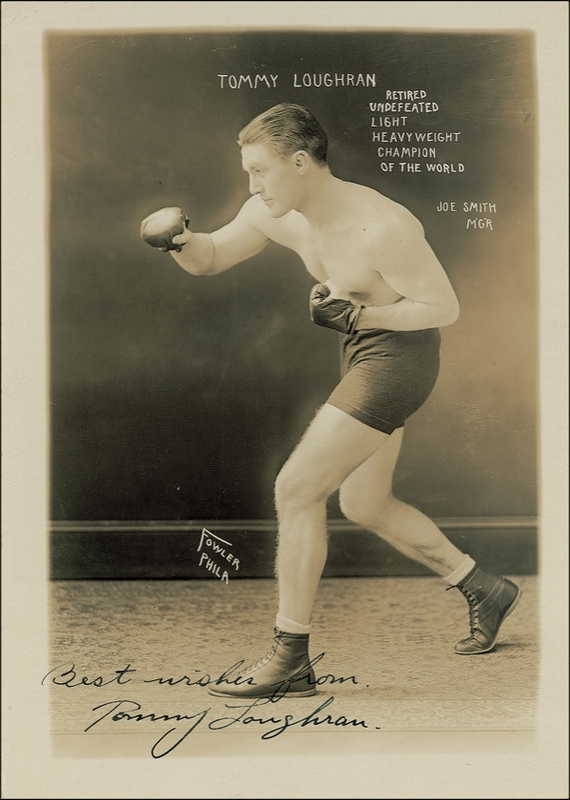 TOMMY LOUGHRAN
RETIRED
UNDEFEATED
LIGHT
HEAVYWEIGHT
CHAMPION
OF THE WORLD
JOE SMITH
M'G'R
FOWLER
PHILA
Best wishes from.
Tommy Loughran.